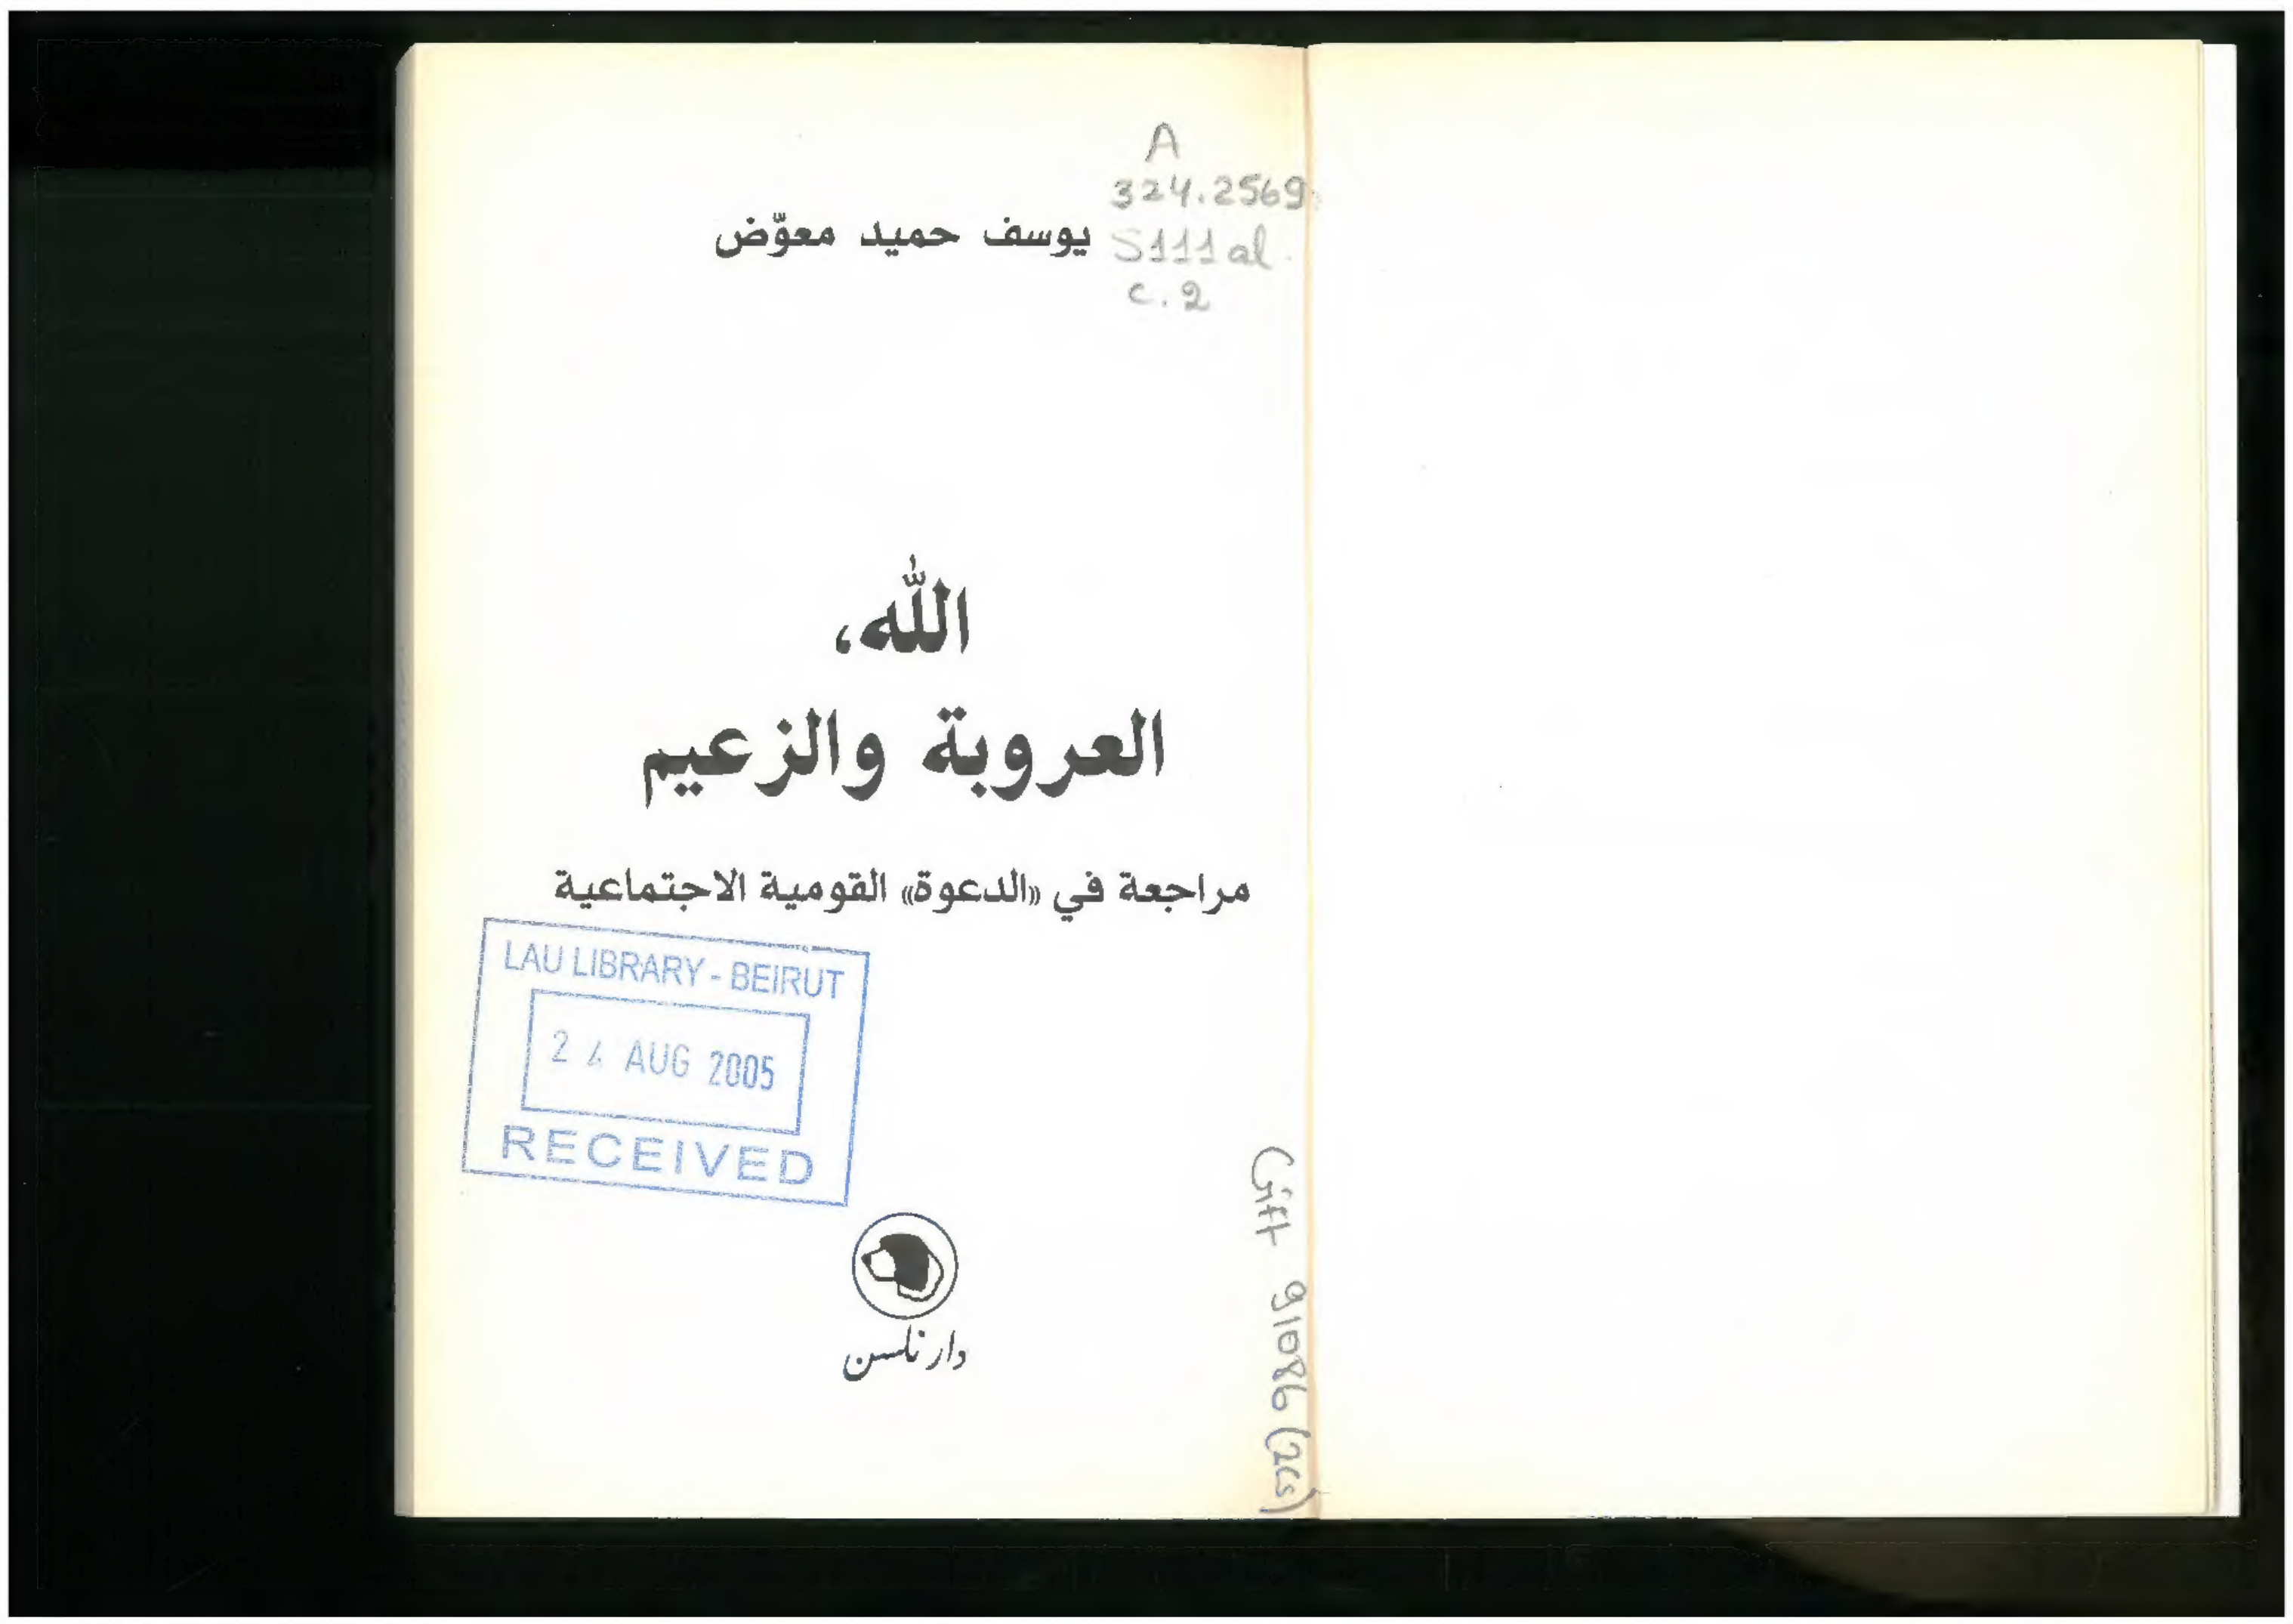 A
324.2569
S111al
c.2
يوسف حميد معوّض
الله،
العروبة والزعيم
مراجعة في «الدعوة» القومية الاجتماعية
LAU LIBRARY - BEIRUT
24 AUG 2005
RECEIVED
دار نلسن
Gift 91086 (2cs)